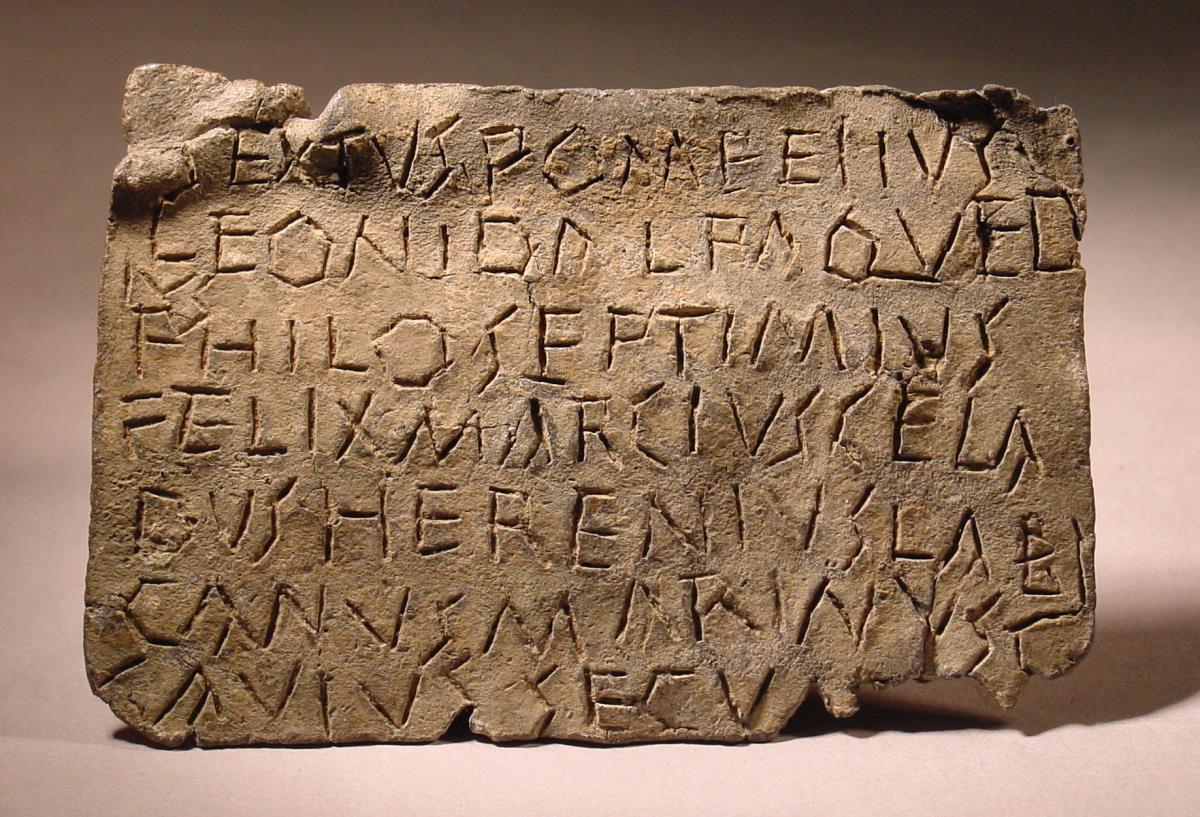 SEXTVS POMPEIIVS
LEONIDA L PAQVED
IVS
PHILO SEPTIMIVS
FELIX MARCIVS CELA
DVS HERENIVS LAB
CANNVS MATRINVS
GAVIVS SECV